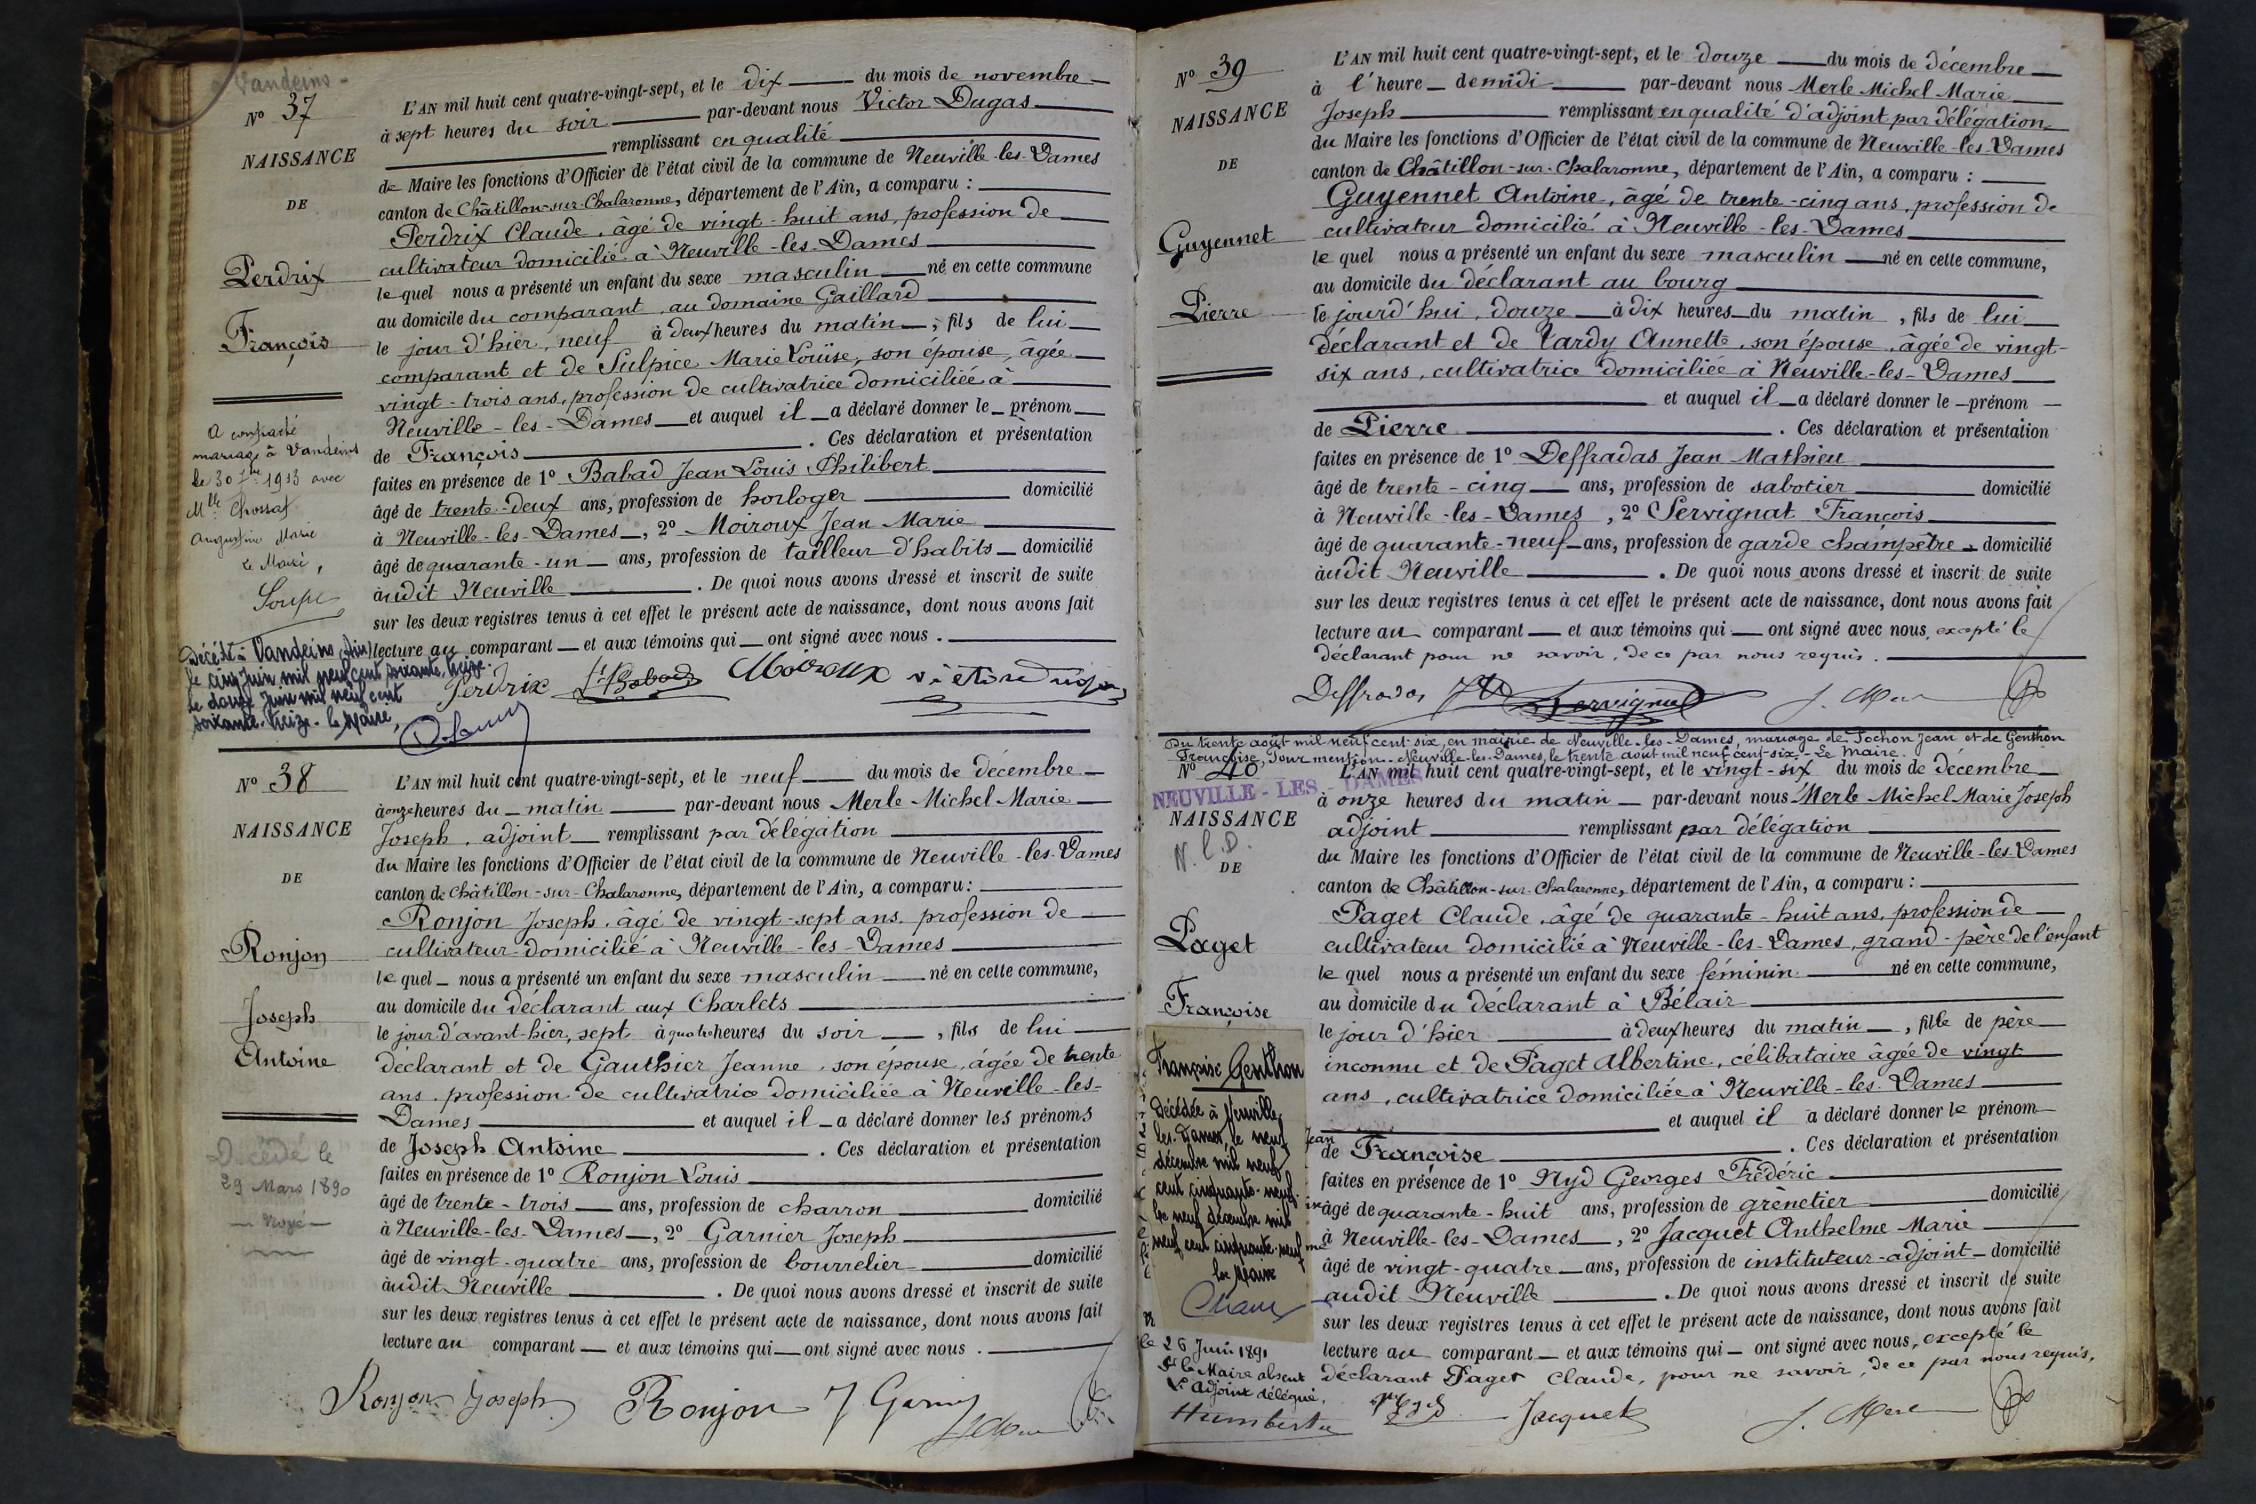 Vandeins -
Nº 37
NAISSANCE
DE
Perdrix
François
A contracté
mariage à Vandeins
le 30 1913 avec
Mlle Chossat
Augustine Marie
Le Maire,
Décédé à Vandeins (Ain)
le cinq Juin mil neuf cent soixante treize.
le douze Juin mil neuf cent
soixante-treize - le Maire,
L'AN mil huit cent quatre-vingt-sept, et le dix du mois de novembre
à sept heures du soir par-devant nous Victor Dugas
remplissant en qualité
de Maire les fonctions d'Officier de l'état civil de la commune de Neuville-les-Dames
canton de Châtillon-sur-Chalaronne, département de l'Ain, a comparu :
Perdrix Claude, âgé de vingt-huit ans, profession de
cultivateur domicilié à Neuville-les-Dames
lequel nous a présenté un enfant du sexe masculin né en cette commune
au domicile du comparant, au domaine Gaillard
le jour d'hier, neuf à deux heures du matin, fils de lui
comparant et de Sulpice Marie Louise, son épouse, âgée
vingt-trois ans, profession de cultivatrice domiciliée à
Neuville-les-Dames et auquel il a déclaré donner le prénom
de François. Ces déclaration et présentation
faites en présence de 1º Babad Jean Louis Philibert
âgé de trente-deux ans, profession de horloger domicilié
à Neuville-les-Dames, 2º Moiroux Jean Marie
âgé de quarante-un ans, profession de tailleur d'habits domicilié
audit Neuville. De quoi nous avons dressé et inscrit de suite
sur les deux registres tenus à cet effet le présent acte de naissance, dont nous avons fait
lecture au comparant et aux témoins qui ont signé avec nous.
Perdrix Babad Moiroux Victor Dugas
Nº 38
NAISSANCE
DE
Ronjon
Joseph
Antoine
Décédé le
29 Mars 1890
Noyé
L'AN mil huit cent quatre-vingt-sept, et le neuf du mois de décembre
à onze heures du matin par-devant nous Merle Michel Marie
Joseph, adjoint remplissant par délégation
du Maire les fonctions d'Officier de l'état civil de la commune de Neuville-les-Dames
canton de Châtillon-sur-Chalaronne, département de l'Ain, a comparu :
Ronjon Joseph, âgé de vingt-sept ans, profession de
cultivateur domicilié à Neuville-les-Dames
lequel nous a présenté un enfant du sexe masculin né en cette commune,
au domicile du déclarant aux Charlets
le jour d'avant-hier, sept à quatre heures du soir, fils de lui
déclarant et de Gauthier Jeanne, son épouse, âgée de trente
ans, profession de cultivatrice domiciliée à Neuville-les-
Dames et auquel il a déclaré donner les prénoms
de Joseph Antoine. Ces déclaration et présentation
faites en présence de 1º Ronjon Louis
âgé de trente-trois ans, profession de charron domicilié
à Neuville-les-Dames, 2º Garnier Joseph
âgé de vingt-quatre ans, profession de bourrelier domicilié
audit Neuville. De quoi nous avons dressé et inscrit de suite
sur les deux registres tenus à cet effet le présent acte de naissance, dont nous avons fait
lecture au comparant et aux témoins qui ont signé avec nous.
Ronjon Joseph Ronjon J Garnier
Nº 39
NAISSANCE
DE
Guyennet
Pierre
L'AN mil huit cent quatre-vingt-sept, et le douze du mois de décembre
à l'heure de midi par-devant nous Merle Michel Marie
Joseph remplissant en qualité d'adjoint par délégation
du Maire les fonctions d'Officier de l'état civil de la commune de Neuville-les-Dames
canton de Châtillon-sur-Chalaronne, département de l'Ain, a comparu :
Guyennet Antoine, âgé de trente-cinq ans, profession de
cultivateur domicilié à Neuville-les-Dames
lequel nous a présenté un enfant du sexe masculin né en cette commune,
au domicile du déclarant au bourg
le jourd'hui, douze à dix heures du matin, fils de lui
déclarant et de Tardy Annette, son épouse, âgée de vingt-
six ans, cultivatrice domiciliée à Neuville-les-Dames
et auquel il a déclaré donner le prénom
de Pierre. Ces déclaration et présentation
faites en présence de 1º Deffradas Jean Mathieu
âgé de trente-cinq ans, profession de sabotier domicilié
à Neuville-les-Dames, 2º Servignat François
âgé de quarante-neuf ans, profession de garde champêtre domicilié
audit Neuville. De quoi nous avons dressé et inscrit de suite
sur les deux registres tenus à cet effet le présent acte de naissance, dont nous avons fait
lecture au comparant et aux témoins qui ont signé avec nous, excepté le
déclarant pour ne savoir, de ce par nous requis.
Deffradas Servignat J. Merle
Du trente août mil neuf cent six, en mairie de Neuville-les-Dames, mariage de Tochon Jean et de Genthon
Françoise, Pour mention. Neuville-les-Dames, le trente août mil neuf cent six. - Le Maire.
Nº 40
NEUVILLE-LES-DAMES
NAISSANCE
N. l. D.
DE
Paget
Françoise
Françoise Genthon
Décédée à Neuville
les-Dames, le neuf
décembre mil neuf
cent cinquante-neuf.
Le neuf décembre mil
neuf cent cinquante-neuf
Le Maire
le 26 Juin 1891
Pr le Maire absent
L'adjoint délégué,
Humbert
L'AN mil huit cent quatre-vingt-sept, et le vingt-six du mois de décembre
à onze heures du matin par-devant nous Merle Michel Marie Joseph
adjoint remplissant par délégation
du Maire les fonctions d'Officier de l'état civil de la commune de Neuville-les-Dames
canton de Châtillon-sur-Chalaronne, département de l'Ain, a comparu :
Paget Claude, âgé de quarante-huit ans, profession de
cultivateur domicilié à Neuville-les-Dames, grand-père de l'enfant
lequel nous a présenté un enfant du sexe féminin né en cette commune,
au domicile du déclarant à Bélair
le jour d'hier à deux heures du matin, fille de père
inconnu et de Paget Albertine, célibataire âgée de vingt
ans, cultivatrice domiciliée à Neuville-les-Dames
et auquel il a déclaré donner le prénom
de Françoise. Ces déclaration et présentation
faites en présence de 1º Nyd Georges Frédéric
âgé de quarante-huit ans, profession de grènetier domicilié
à Neuville-les-Dames, 2º Jacquet Anthelme Marie
âgé de vingt-quatre ans, profession de instituteur-adjoint domicilié
audit Neuville. De quoi nous avons dressé et inscrit de suite
sur les deux registres tenus à cet effet le présent acte de naissance, dont nous avons fait
lecture au comparant et aux témoins qui ont signé avec nous, excepté le
déclarant Paget Claude, pour ne savoir, de ce par nous requis.
Nyd Jacquet J. Merle